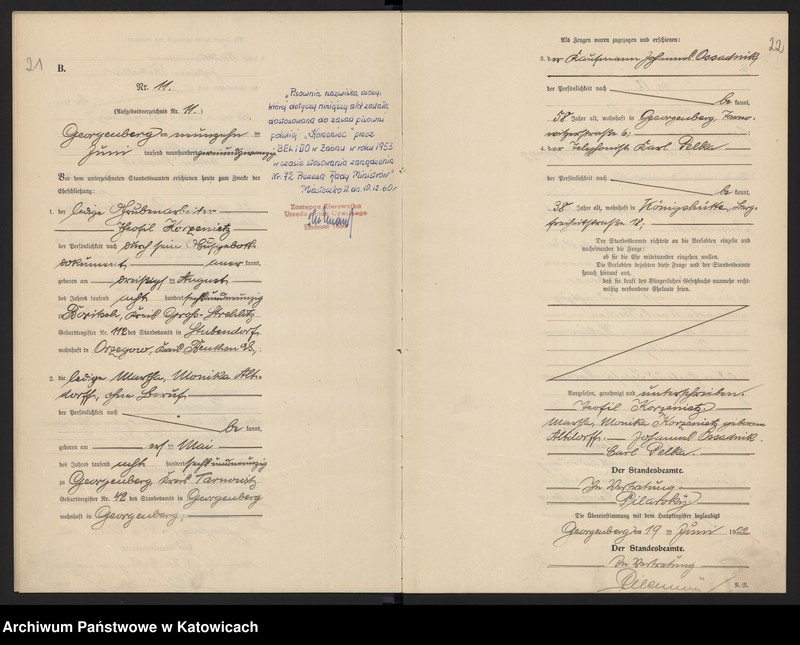 21
B.
Nr. 11.
(Aufgebotsverzeichnis Nr. 11.)
Georgenberg am neunzehn ten
Juni tausend neunhundert
Vor dem unterzeichneten Standesbeamten erschienen heute zum Zwecke der
Eheschließung:
1. der ledige Grubenarbeiter
Theofil Korzenietz
der Persönlichkeit nach durch sein Aufgebots-
dokument aner kannt,
geboren am dreißigsten August
des Jahres tausend acht hundert sechsundneunzig
Kreis Groß-Strehlitz
Geburtsregister Nr. 112 des Standesamts in Stubendorf,
wohnhaft in Orzegow, Kreis Beuthen O/S.,
2. die ledige Martha, Monika Alt-
dorff, ohne Beruf
der Persönlichkeit nach
be kannt,
geboren am ten Mai
des Jahres tausend acht hundert sechsundneunzig
zu Georgenberg, Kreis Tarnowitz
Geburtsregister Nr. 12 des Standesamts in Georgenberg
wohnhaft in Georgenberg;
„Pisownia nazwiska osoby,
której dotyczy niniejszy akt została
dostosowana do zasad pisowni
polskiej: „Korzeniec” przez
w Zabrzu w roku 1953
w czasie stosowania zarządzenia
Nr. 72 Prezesa Rady Ministrów”
Miasteczko Śl. dn. 10.12.60r.
Zastępca Kierownika
Urzędu Stanu Cywilnego
22
Als Zeugen waren zugezogen und erschienen:
3. der Kaufmann Johannes Ossadnik
der Persönlichkeit nach
be kannt,
58 Jahre alt, wohnhaft in Georgenberg, Tarno-
witzerstraße 6;
4. der Telephonist Karl Pelka
der Persönlichkeit nach
be kannt,
38 Jahre alt, wohnhaft in Königshütte, Berg-
freiheitstraße 18;
Der Standesbeamte richtete an die Verlobten einzeln und
nacheinander die Frage:
ob sie die Ehe miteinander eingehen wollen.
Die Verlobten bejahten diese Frage und der Standesbeamte
sprach hierauf aus,
daß sie kraft des Bürgerlichen Gesetzbuchs nunmehr recht-
mäßig verbundene Eheleute seien.
Vorgelesen, genehmigt und unterschrieben.
Teofil Korzenietz
Martha, Monika Korzenietz geborene
Altdorff. Johannes Ossadnik.
Carl Pelka.
Der Standesbeamte.
In Vertretung
Pilarsky
Die Übereinstimmung mit dem Hauptregister beglaubigt
Georgenberg am 19 ten Juni 19
Der Standesbeamte.
In Vertretung
Archiwum Państwowe w Katowicach